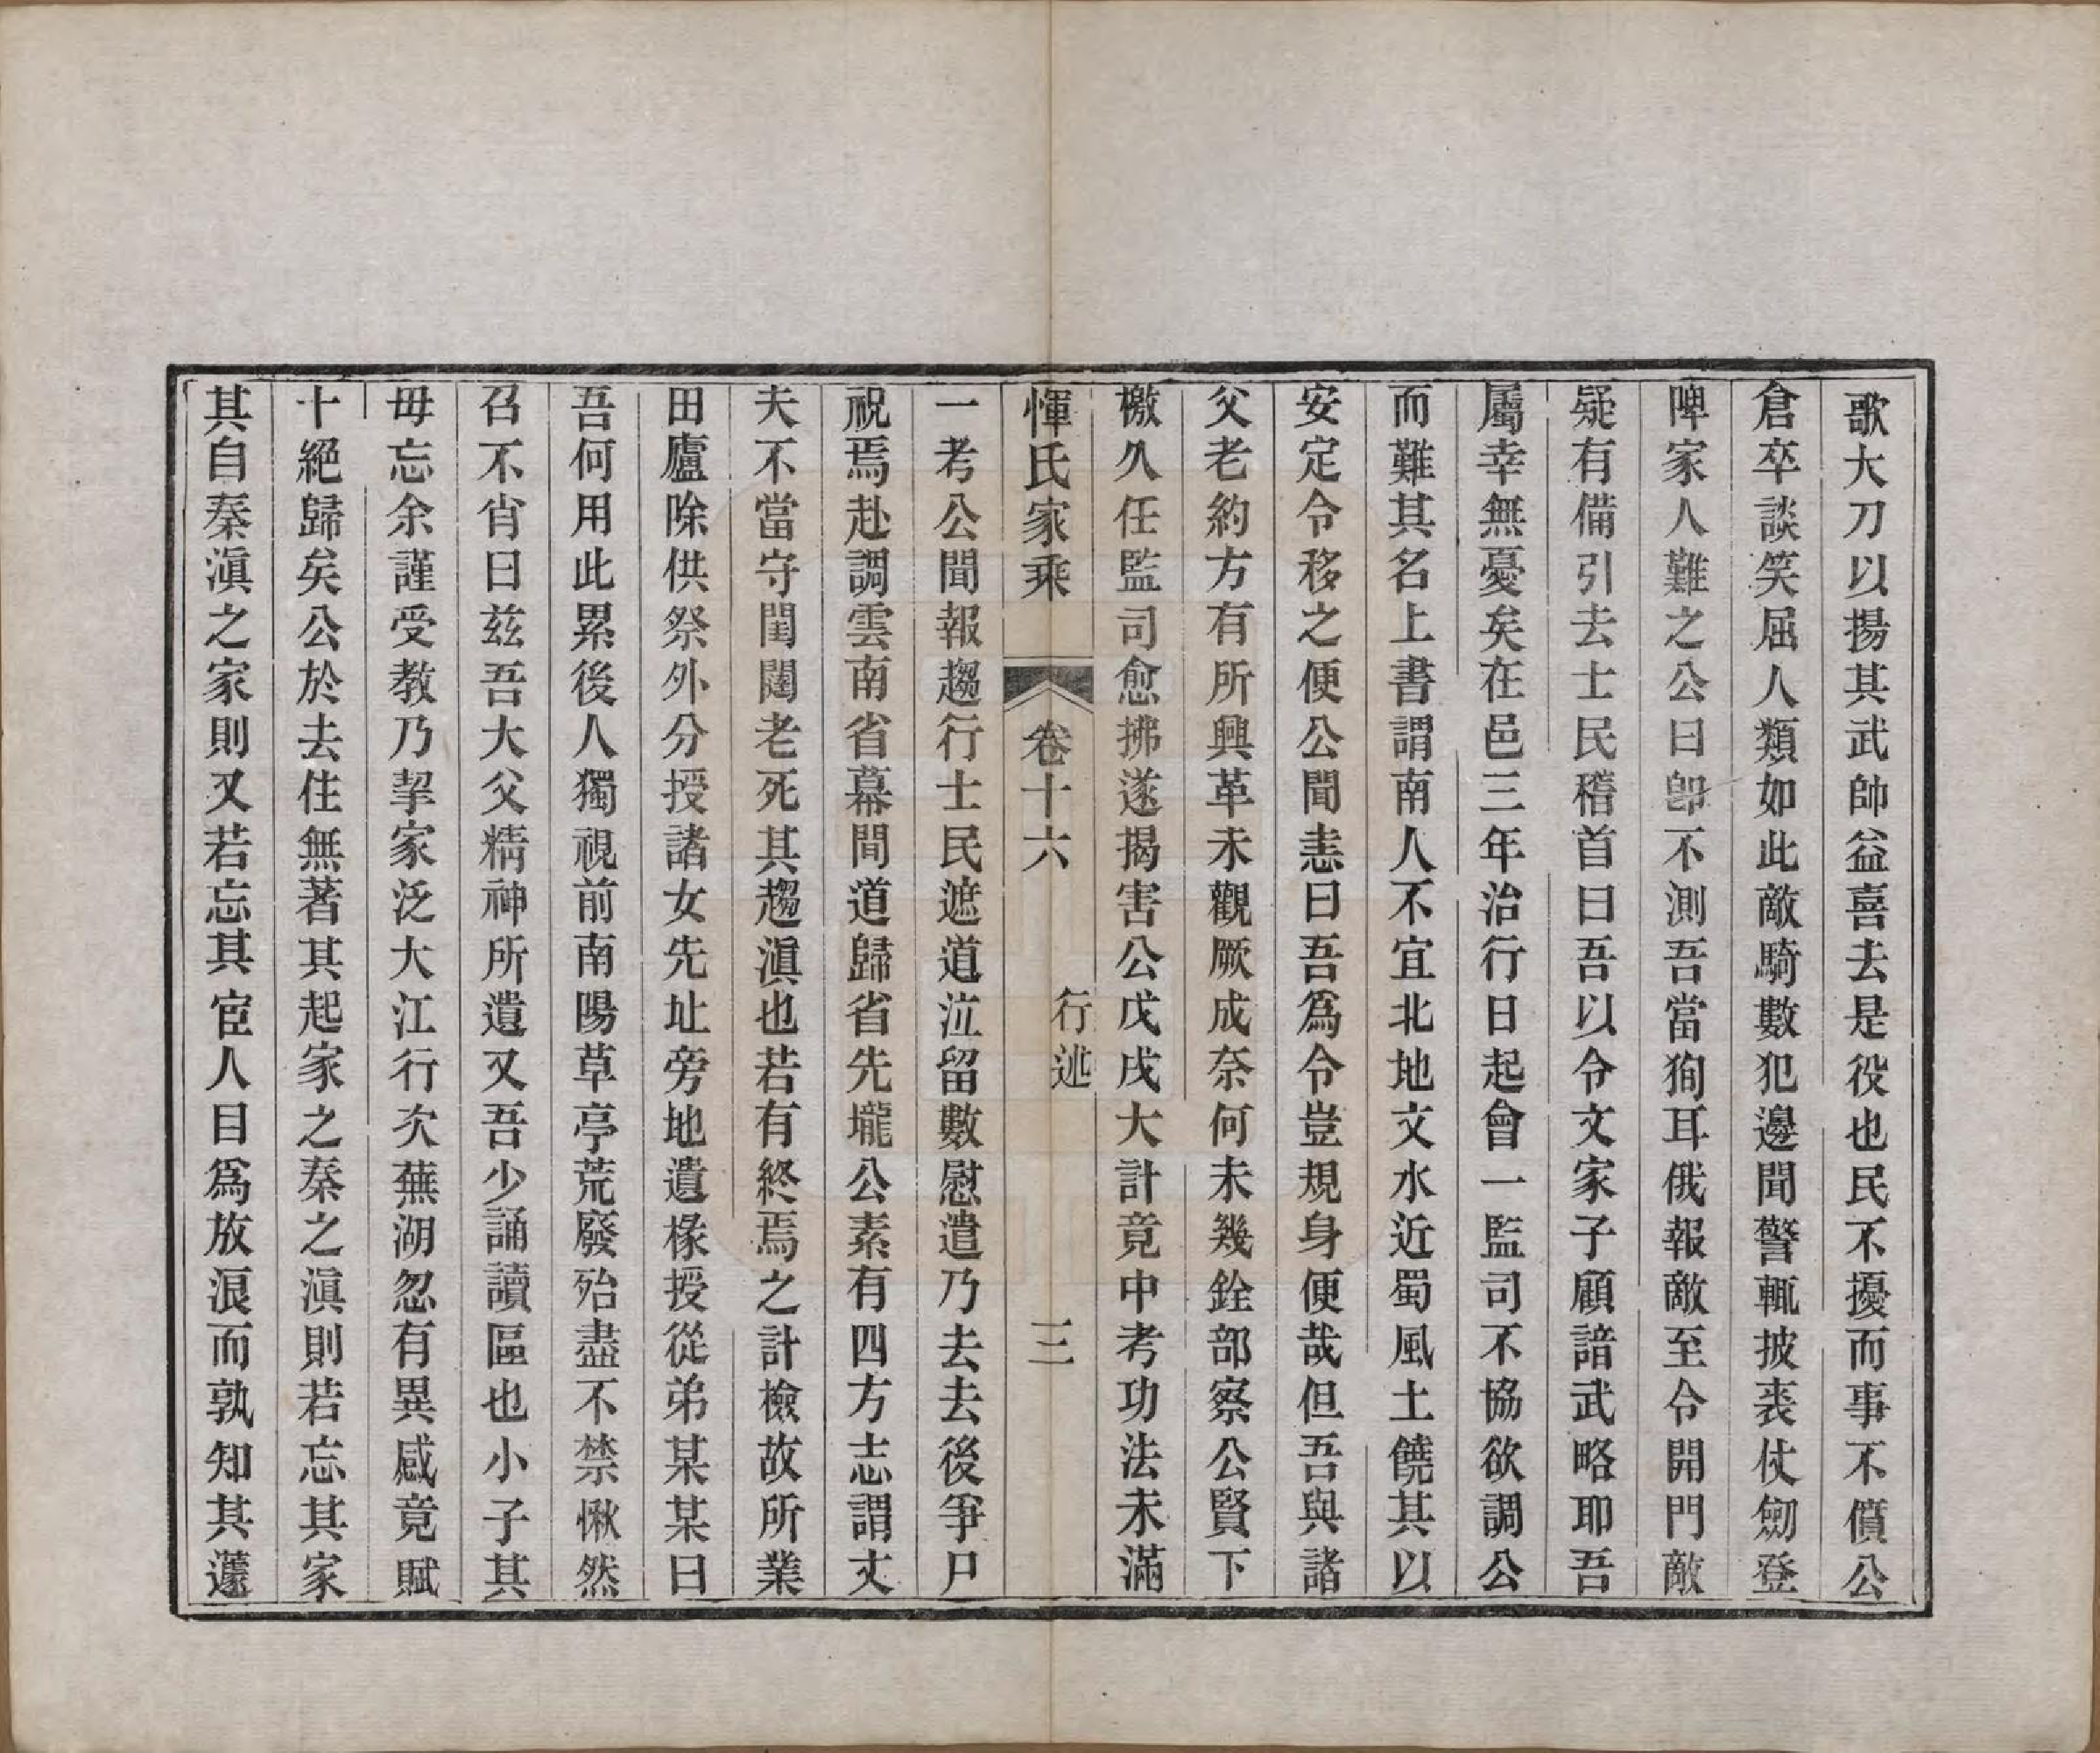 歌大刀以揚其武帥益喜去是役也民不擾而事不僨公
倉卒談笑屈人類如此敵騎數犯邊聞警輒披裘仗劒登
陴家人難之公曰卽不測吾當狥耳俄報敵至令開門敵
疑有備引去士民稽首曰吾以令文家子顧諳武略耶吾
屬幸無憂矣在邑三年治行日起會一監司不協欲調公
而難其名上書謂南人不宜北地文水近蜀風土饒其以
安定令移之便公聞恚曰吾爲令豈規身便哉但吾與諸
父老約方有所興革未觀厥成奈何未幾銓部察公賢下
檄久任監司愈拂遂揭害公戊戌大計竟中考功法未滿
惲氏家乘 卷十六 行述 三
一考公聞報趨行士民遮道泣留數慰遣乃去去後爭尸
祝焉赴調雲南省幕間道歸省先壠公素有四方志謂丈
夫不當守閨闥老死其趨滇也若有終焉之計檢故所業
田廬除供祭外分授諸女先址旁地遺椽授從弟某某曰
吾何用此累後人獨視前南陽草亭荒廢殆盡不禁愀然
召不肖曰茲吾大父精神所遺又吾少誦讀區也小子其
毋忘余謹受教乃挈家泛大江行次蕪湖忽有異感竟賦
十絕歸矣公於去住無著其起家之秦之滇則若忘其家
其自秦滇之家則又若忘其宦人目爲放浪而孰知其蘧